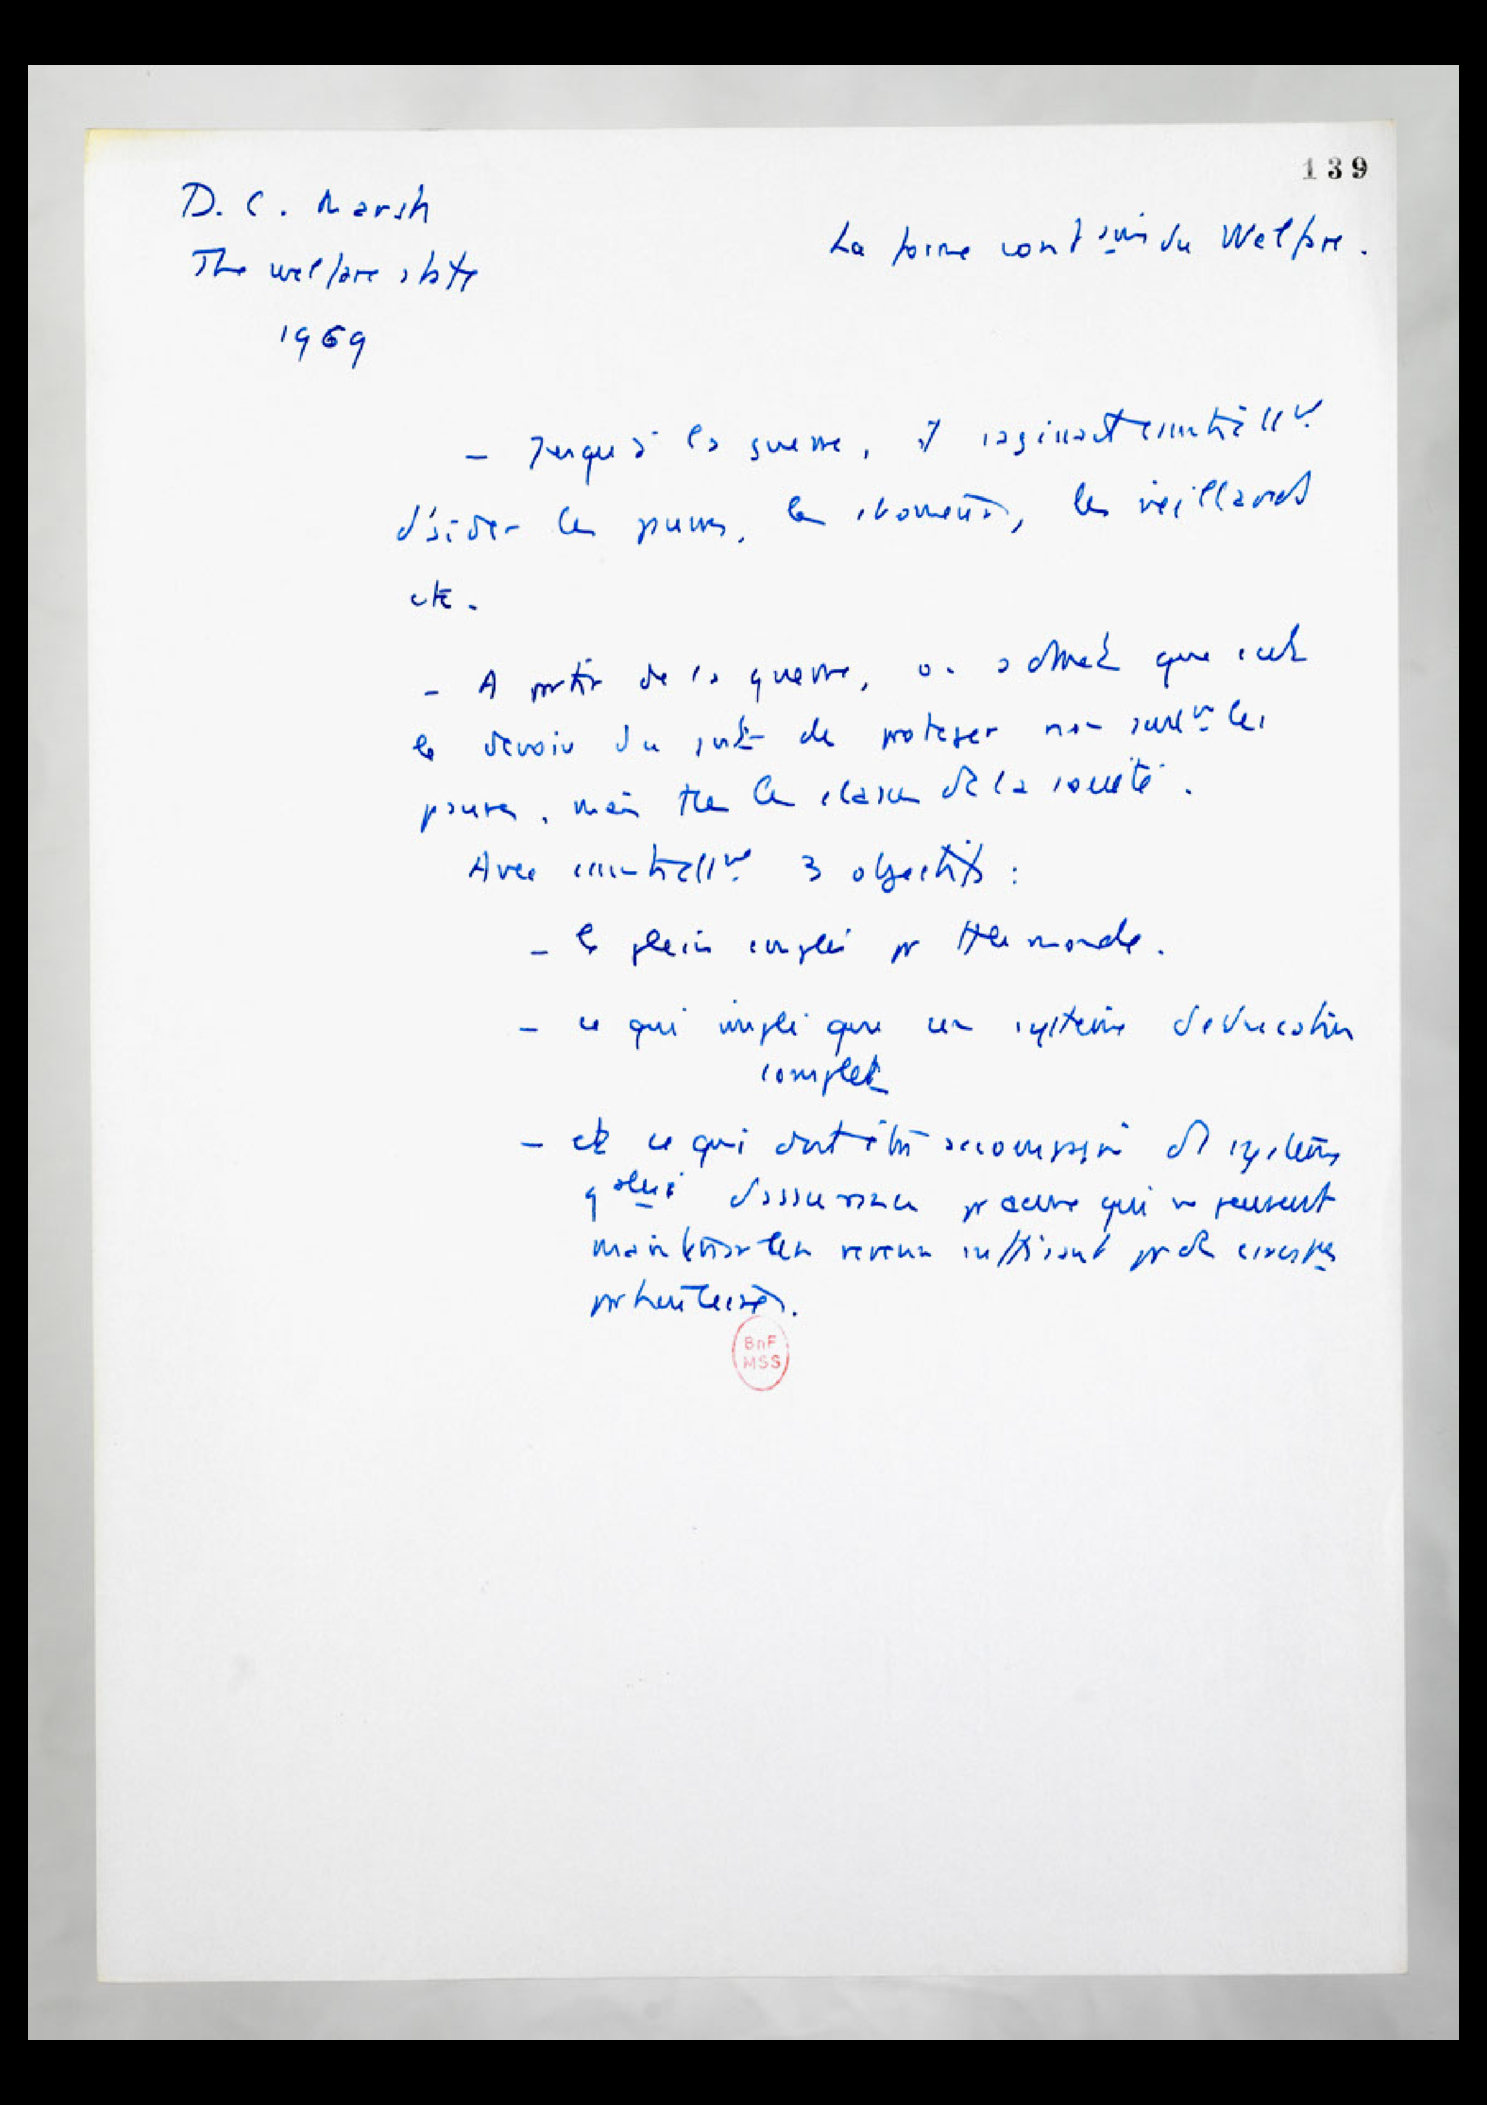 139
D. C. Marsh
The welfare state
1969
La forme cont aine du Welfare.
- Jusqu'à la guerre, il s'agissait essentiellt
d'aider les pauvres, les chômeurs, les vieillards
etc.
- A partir de la guerre, on admet que c'est
le devoir du de proteger non seult les
pauvres, mais ttes les classes de la société.
Avec essentiellt 3 objectifs :
- le plein emploi pr tt le monde.
- ce qui implique un système d'education
complet
- et ce qui doit être accompagné de systèmes
d'assurance pr ceux qui ne peuvent
maintenir leur revenu suffisant pr des
particulières.
BnF
MSS